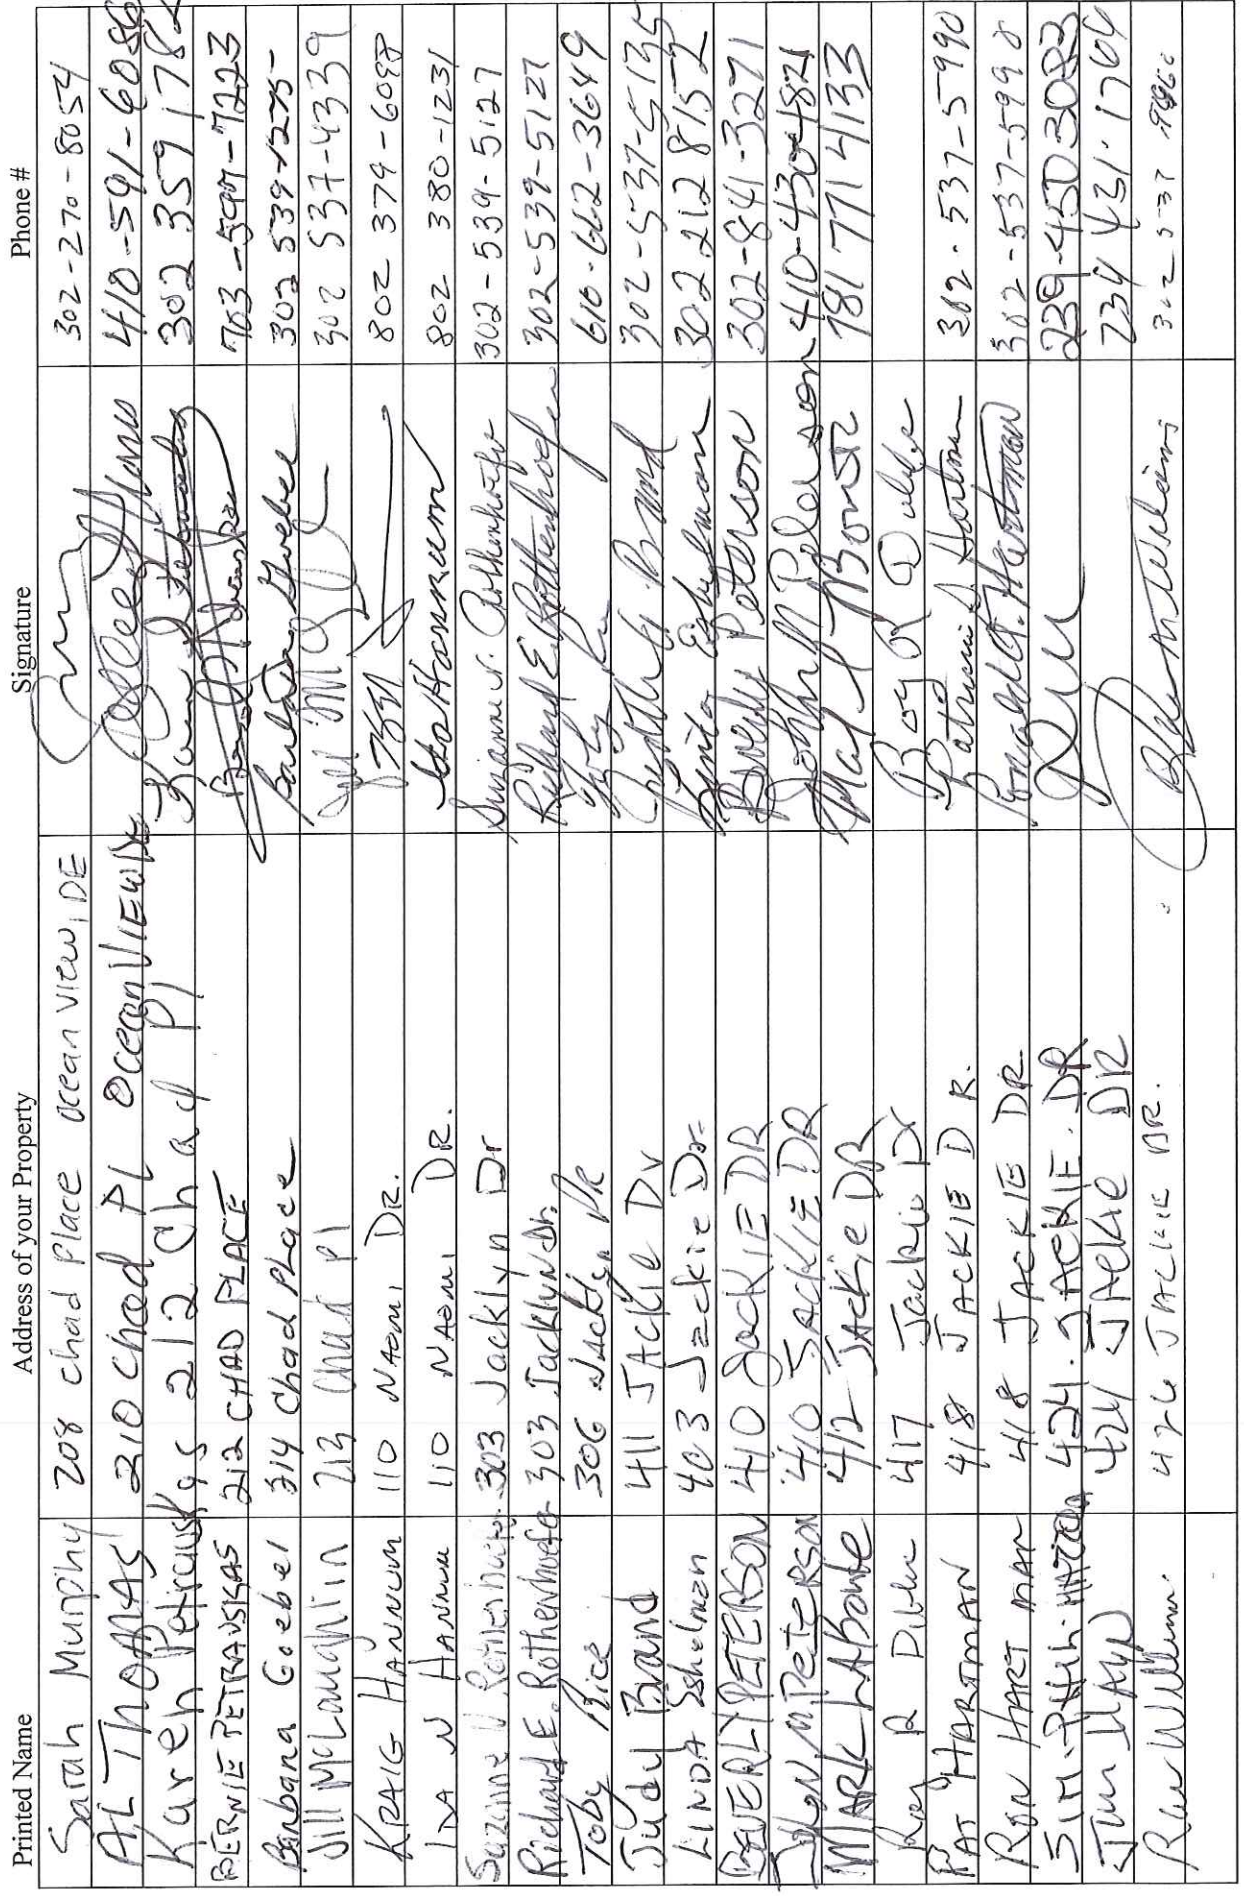 Printed Name Address of your Property Signature Phone #
Sarah Murphy 208 Chad Place Ocean View, DE 302-270-8054
AL THOMAS 210 Chad Pl Ocean VIEW, DE 410-591-6086
Karen Petrauskas 212 Chad Pl 302 359 178
BERNIE PETRAUSKAS 212 CHAD PLACE 703 7223
Barbara Goebel 314 Chad PLace Barbara Goebel 302 539-1275
Jill McLaughlin 213 Chad Pl 302 537-4339
KRAIG HANNUM 110 NAOMI DR. 802 379-6098
IDA N HANNUM 110 NAOMI DR. Ida Hannum 802 380-1231
Suzanne V. Rothenhoefer 303 Jacklyn Dr Suzanne V. Rothenhoefer 302-539-5127
Richard E. Rothenhoefer 303 Jacklyn Dr. Richard E. Rothenhoefer 302-539-5127
Toby Rice 306 Jacklyn DR 610-662-3649
Judy Brand 411 JACKIE Dr Brand 302-537-5135
LINDA Eshelman 403 Jackie Dr. Linda Eshelman 302 212 8152
BEVERLY PETERSON 410 JackIE DR Beverly Peterson 302-841-3271
JOHN M PETERSON 410 JACKIE DR John M Peterson 410-430-4821
MARK LABonte 412 JACKIE DR 781 771 4133
Roy R 417 Jackie Dr Roy R
PAT HARTMAN 418 JACKIE DR. Patricia A Hartman 302-537-5990
RON HARTMAN 418 JACKIE DR. Ronald G. Hartman 302-537-599
JIM 424 JACKIE DR 239-450 3083
Jim 424 JACKIE DR 734 431-1764
426 JACKIE DR. Williams 302 537